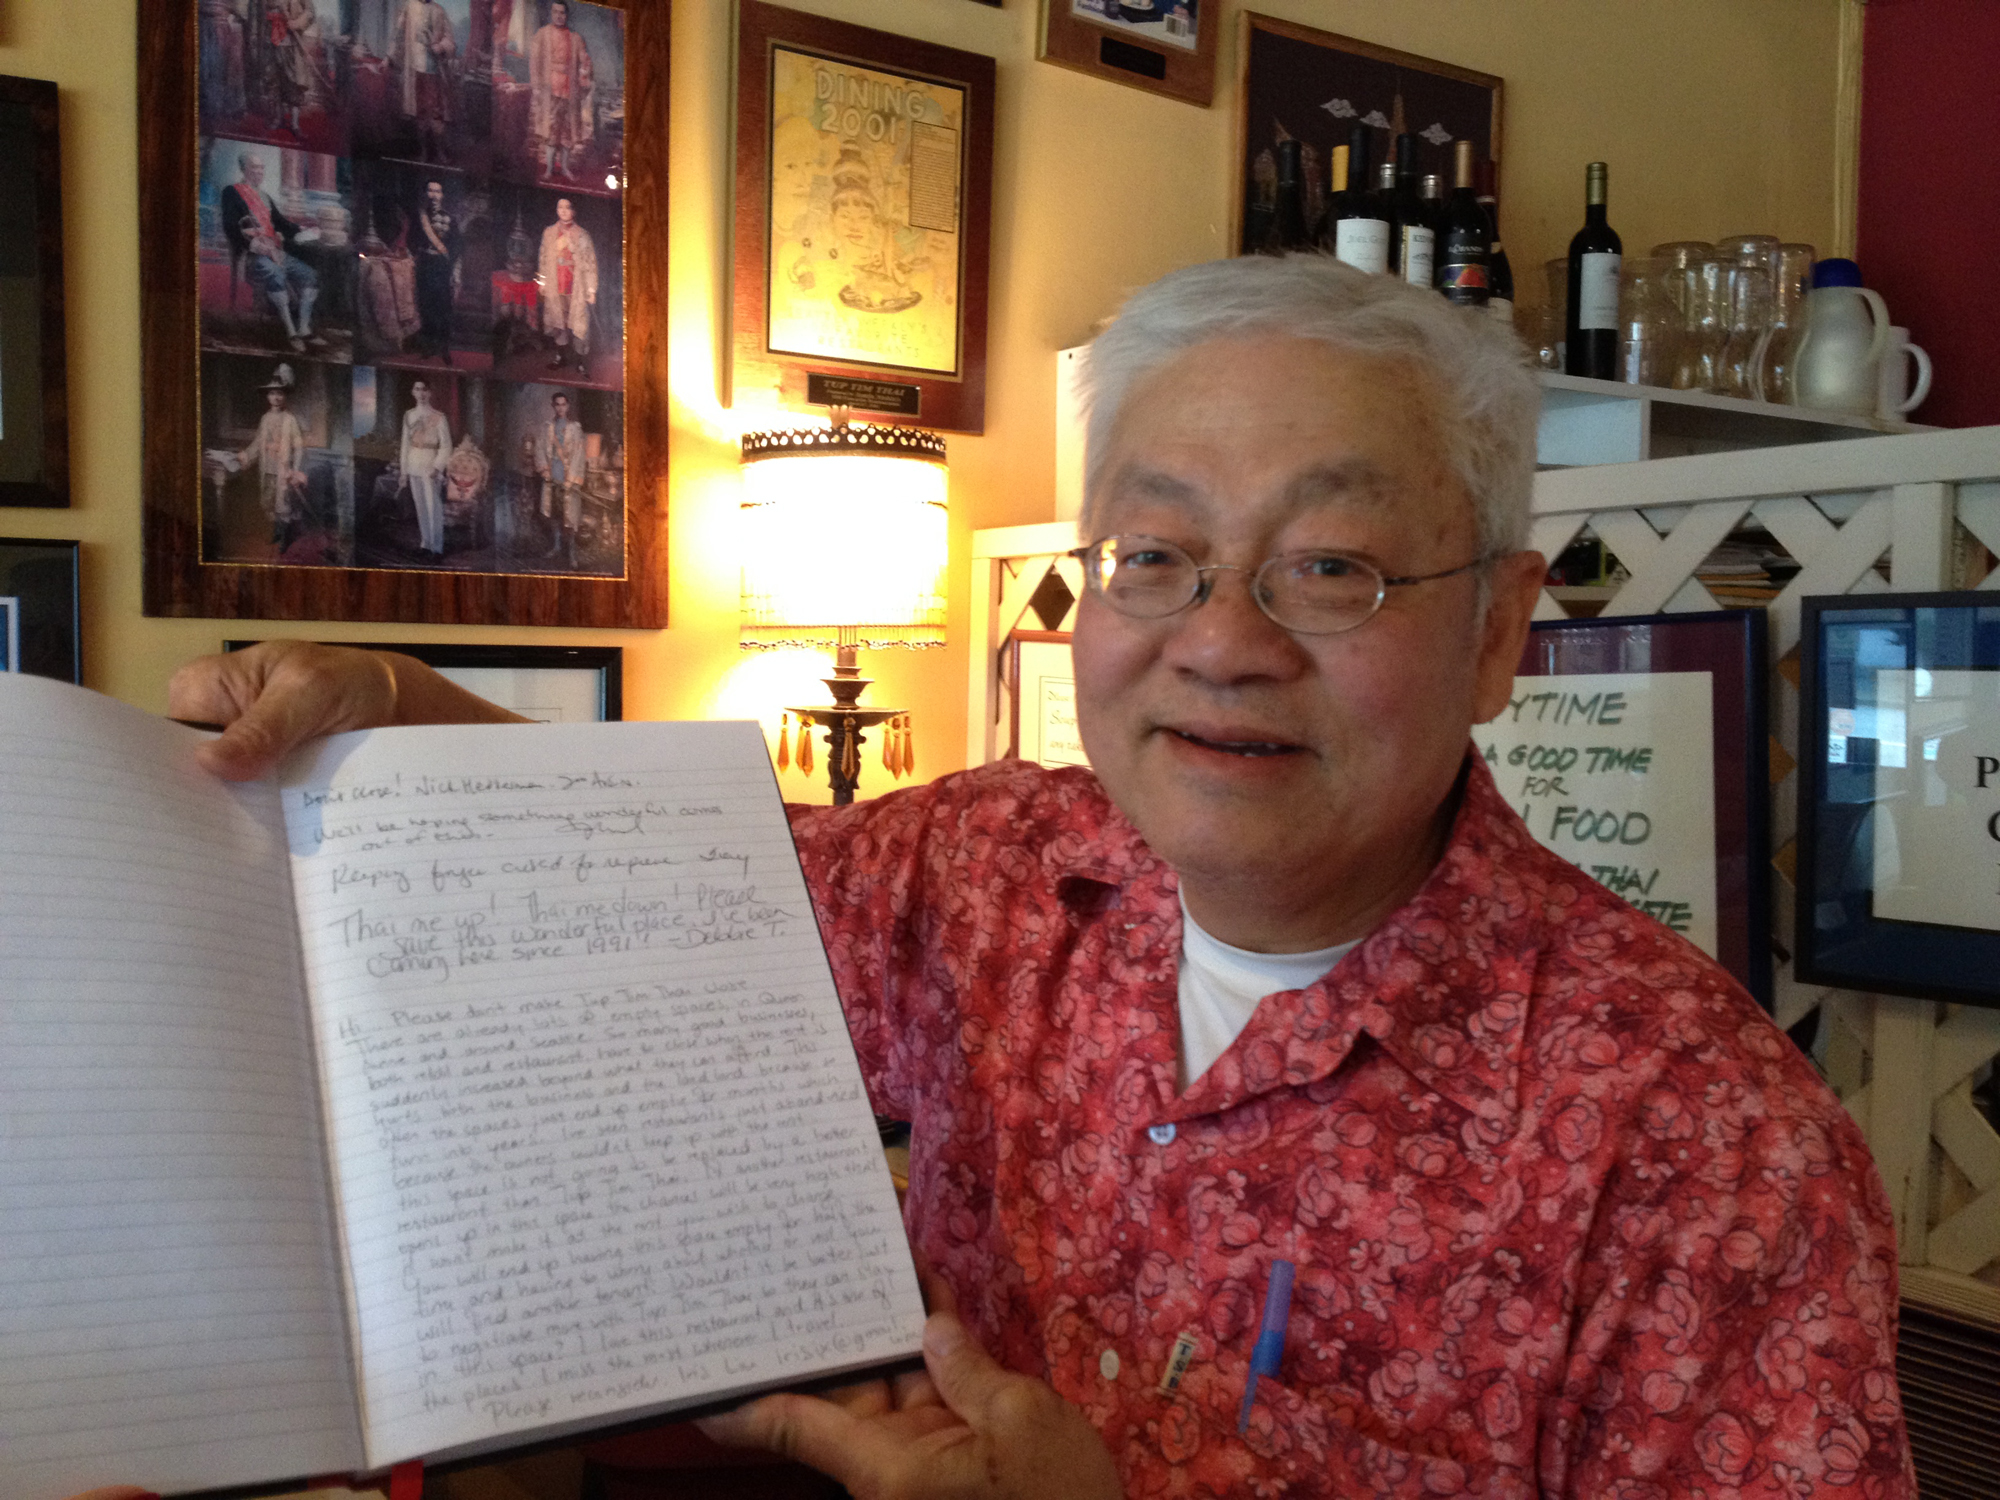 DINING
2001
WEEKLY'S
RESTAURANTS
TUP TIM THAI
YTIME
A GOOD TIME
FOR
FOOD
THAI
Don't close! Nick
We'll be hoping something wonderful comes
out of this.
Keeping finger crossed for reprieve
Thai me up! Thai me down! Please
save this wonderful place. I've been
coming here since 1991! - Debbie T.
Hi... Please don't make Tup Tim Thai close.
There are already lots of empty spaces in Queen
Anne and around Seattle. So many good businesses,
both retail and restaurant have to close when the rent is
suddenly increased beyond what they can afford. This
hurts both the business and the landlord because so
often the spaces just end up empty for months which
turn into years. I've seen restaurants just abandoned
because the owners couldn't keep up with the rent.
this space is not going to be replaced by a better
restaurant than Tup Tim Thai. If another restaurant
opens up in this space the chances will be very high that
it won't make it at the rent you wish to charge.
You will end up having this space empty for half the
time and having to worry about whether or not you
will find another tenant. Wouldn't it be better just
to negotiate more with Tup Tim Thai so they can stay
in this space? I love this restaurant and it's one of
the places I miss the most whenever I travel.
Please reconsider. Iris Lau